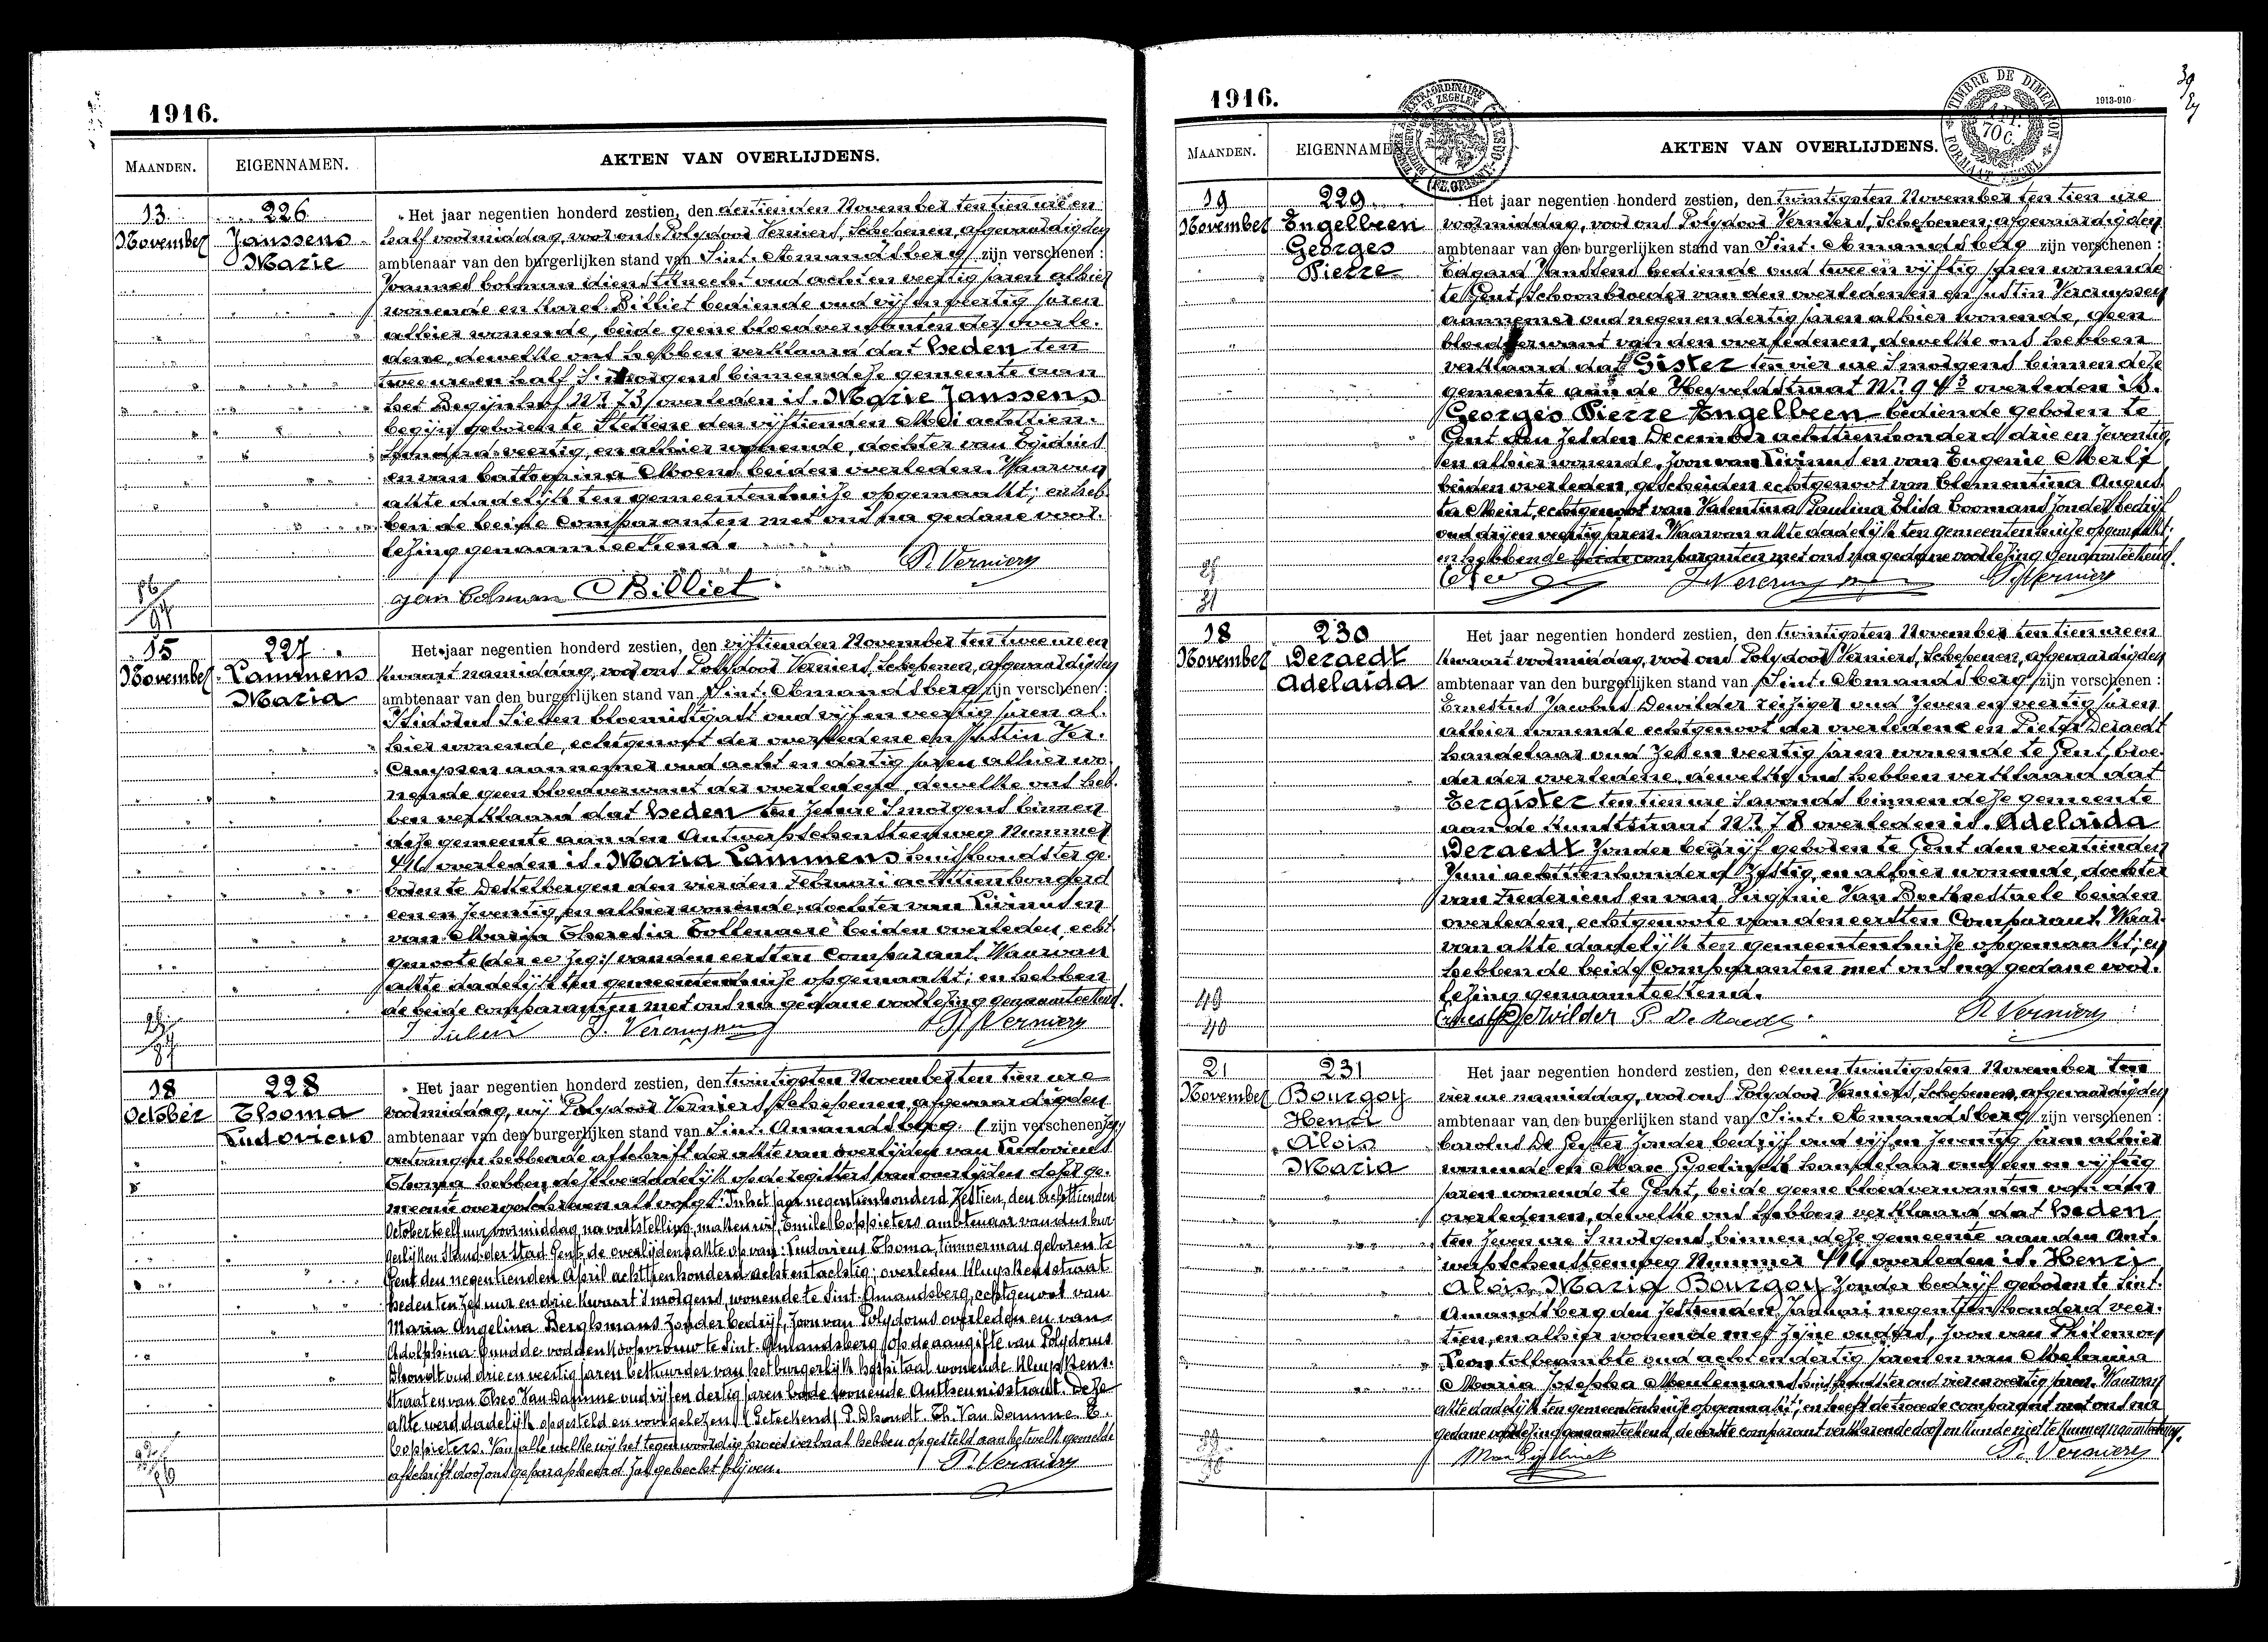 1916.
MAANDEN. EIGENNAMEN. AKTEN VAN OVERLIJDENS.
13 November
226
Janssens
Marie
Het jaar negentien honderd zestien, den dertienden November ten tien ure en
half voormiddag, voor ons Polydoor Verniers, Schepenen, afgevaardigden
ambtenaar van den burgerlijken stand van Sint-Amandsberg zijn verschenen :
Joannes Colman dienstknecht oud acht en veertig jaren alhier
wonende en Karel Billiet bediende oud vijf en veertig jaren
alhier wonende, beide geene bloedverwanten der overle-
dene, dewelke ons hebben verklaard dat heden ten
twee ure en half 's morgens binnen deze gemeente aan
het Begijnhof Nr 73 overleden is. Marie Janssens
begijn geboren te Stekene den vijftienden Mei achttien-
honderd veertig, en alhier wonende, dochter van Egidius
en van Catharina Moens beiden overleden. Waarvan
akte dadelijk ten gemeentenhuize opgemaakt; en heb-
ben de beide Comparanten met ons na gedane voor-
lezing genaamteekend.
P. Verniers
Jan Colman Billiet
15 November
227
Lammens
Maria
Het jaar negentien honderd zestien, den vijftienden November ten twee ure en
kwaart namiddag, voor ons Polydoor Verniers, Schepenen, afgevaardigden
ambtenaar van den burgerlijken stand van Sint-Amandsberg zijn verschenen :
Isidorus Sieben bloemistgast oud vijf en veertig jaren al-
hier wonende, echtgenoot der overledene en Justin Ver-
cruyssen aannemer oud acht en dertig jaren alhier wo-
nende geen bloedverwant der overledene, dewelke ons heb-
ben verklaard dat heden ten zes ure 's morgens binnen
deze gemeente aan den Antwerpschensteenweg Nummer
overleden is. Maria Lammens huishoudster ge-
boren te Destelbergen den vierden Februari achttienhonderd
een en zeventig, en alhier wonende, dochter van Livinus en
van Maria Theresia Tollenaere beiden overleden, echt-
genoote (der ee zeg:) van den eersten Comparant. Waarvan
akte dadelijk ten gemeentenhuize opgemaakt; en hebben
de beide comparanten met ons na gedane voorlezing genaamteekend.
J. Vercruyssen P. Verniers
18 October
228
Thoma
Ludovicus
Het jaar negentien honderd zestien, den twintigsten November ten tien ure
voormiddag, wij Polydoor Verniers Schepenen afgevaardigden
ambtenaar van den burgerlijken stand van Sint-Amandsberg (zijn verschenen zeg)
ontvangen hebbende afschrift der akte van overlijden van Ludovicus
Thoma hebben dezelve dadelijk op de registers van overlijden dezer ge-
meente overgeschreven als volgt: "In het jaar negentienhonderd Zestien, den achttienden
October te elf uur voormiddag na vaststelling, maken wij, Emile Coppieters ambtenaar van den bur-
gerlijken Stand der Stad Gent, de overlijdensakte op van: Ludovicus Thoma, timmerman geboren te
Gent den negentienden April achttienhonderd acht en tachtig; overleden Kluyskensstraat
heden ten Zes uur en drie kwaart 's morgens, wonende te Sint-Amandsberg, echtgenoot van
Maria Angelina Berghmans Zonder bedrijf, Zoon van Polydorus overleden en van
Adolphina voddenkoopvrouw te Sint-Amandsberg, op de aangifte van Polydorus
Dhondt oud drie en veertig jaren bestuurder van het burgerlijk hospitaal wonende Kluyskens-
straat en van Theo Van Damme oud vijf en dertig jaren bode wonende Antheunisstraat. Deze
akte werd dadelijk opgesteld en voorgelezen. (Geteekend) P. Dhondt. Th. Van Damme. E.
Coppieters. Van alle welke wij het tegenwoordig proces verbaal hebben opgesteld aan hetwelk gemelde
afschrift door ons geparapheerd zal gehecht blijven.
P. Verniers
1916.
1913-910
TIMBRE DE DIMENSION
MAANDEN. EIGENNAMEN. AKTEN VAN OVERLIJDENS.
19 November
229
Engelbeen
Georges
Pierre
Het jaar negentien honderd zestien, den twintigsten November ten tien ure
voormiddag, voor ons Polydoor Verniers, Schepenen, afgevaardigden
ambtenaar van den burgerlijken stand van Sint-Amandsberg zijn verschenen :
Edgard Janssens bediende oud twee en vijftig jaren wonende
te Gent, Schoonbroeder van den overledenen en Justin Vercruyssen
aannemer oud negen en dertig jaren alhier wonende, geen
bloedverwant van den overledenen, dewelke ons hebben
verklaard dat Gister ten vier ure 's morgens binnen deze
gemeente aan de Heyveldstraat overleden is.
Georges Pierre Engelbeen bediende geboren te
Gent den Zesden December achttienhonderd drie en zeventig,
en alhier wonende, Zoon van Livinus en van Eugenie
beiden overleden, gescheiden echtgenoot van Clementina Augus-
ta echtgenoot van Valentina Paulina Elida Coomans zonder bedrijf
oud drij en veertig jaren. Waarvan akte dadelijk ten gemeentenhuize opgemaakt;
en hebben de beide comparanten met ons na gedane voorlezing Genaamteekend.
J. Vercruyssen P. Verniers
18 November
230
Deraedt
Adelaida
Het jaar negentien honderd zestien, den twintigsten November ten tien ure en
kwaart voormiddag, voor ons Polydoor Verniers, Schepenen, afgevaardigden
ambtenaar van den burgerlijken stand van Sint-Amandsberg zijn verschenen :
Ernestus Jacobus Dewilder reiziger oud zeven en veertig jaren
alhier wonende echtgenoot der overledene en Pieter Deraedt
handelaar oud Zes en veertig jaren wonende te Gent, broe-
der der overledene, dewelke ons hebben verklaard dat
Eergister ten tien ure 's avonds binnen deze gemeente
aan de Kunststraat Nr 78 overleden is. Adelaida
Deraedt Zonder bedrijf geboren te Gent den veertienden
Juni achttienhonderd Zestig, en alhier wonende, dochter
van Fredericus en van Virginie Van beiden
overleden, echtgenoote van den eersten Comparant. Waar-
van akte dadelijk ten gemeentenhuize opgemaakt; en
hebben de beide Comparanten met ons na gedane voor-
lezing genaamteekend.
49
40
Ernest Dewilder P. De Raedt P. Verniers
21 November
231
Bourgoy
Henri
Aloïs
Maria
Het jaar negentien honderd zestien, den eenen twintigsten November ten
vier ure namiddag, voor ons Polydoor Verniers, Schepenen, afgevaardigden
ambtenaar van den burgerlijken stand van Sint-Amandsberg zijn verschenen :
Carolus De Zonder bedrijf oud vijf en Zeventig jaren alhier
wonende en Max Gyselinck handelaar oud een en vijftig
jaren wonende te Gent, beide geene bloedverwanten van den
overledenen, dewelke ons hebben verklaard dat heden
ten zeven ure 's morgens, binnen deze gemeente aan den Ant-
werpschensteenweg Nummer overleden is. Henri
Aloïs, Maria Bourgoy Zonder bedrijf geboren te Sint-
Amandsberg den Zestienden Januari negentienhonderd veer-
tien, en alhier wonende met Zijne ouders, Zoon van Philemon
Leon tolbeambte oud acht en dertig jaren en van
Maria Josepha Meulemans huishoudster oud vier en veertig jaren. Waarvan
akte dadelijk ten gemeentenhuize opgemaakt; en heeft de tweede comparant met ons na
gedane voorlezing genaamteekend, de eerste comparant verklarende door onkunde niet te kunnen naamteekenen.
Max Gyselinck P. Verniers